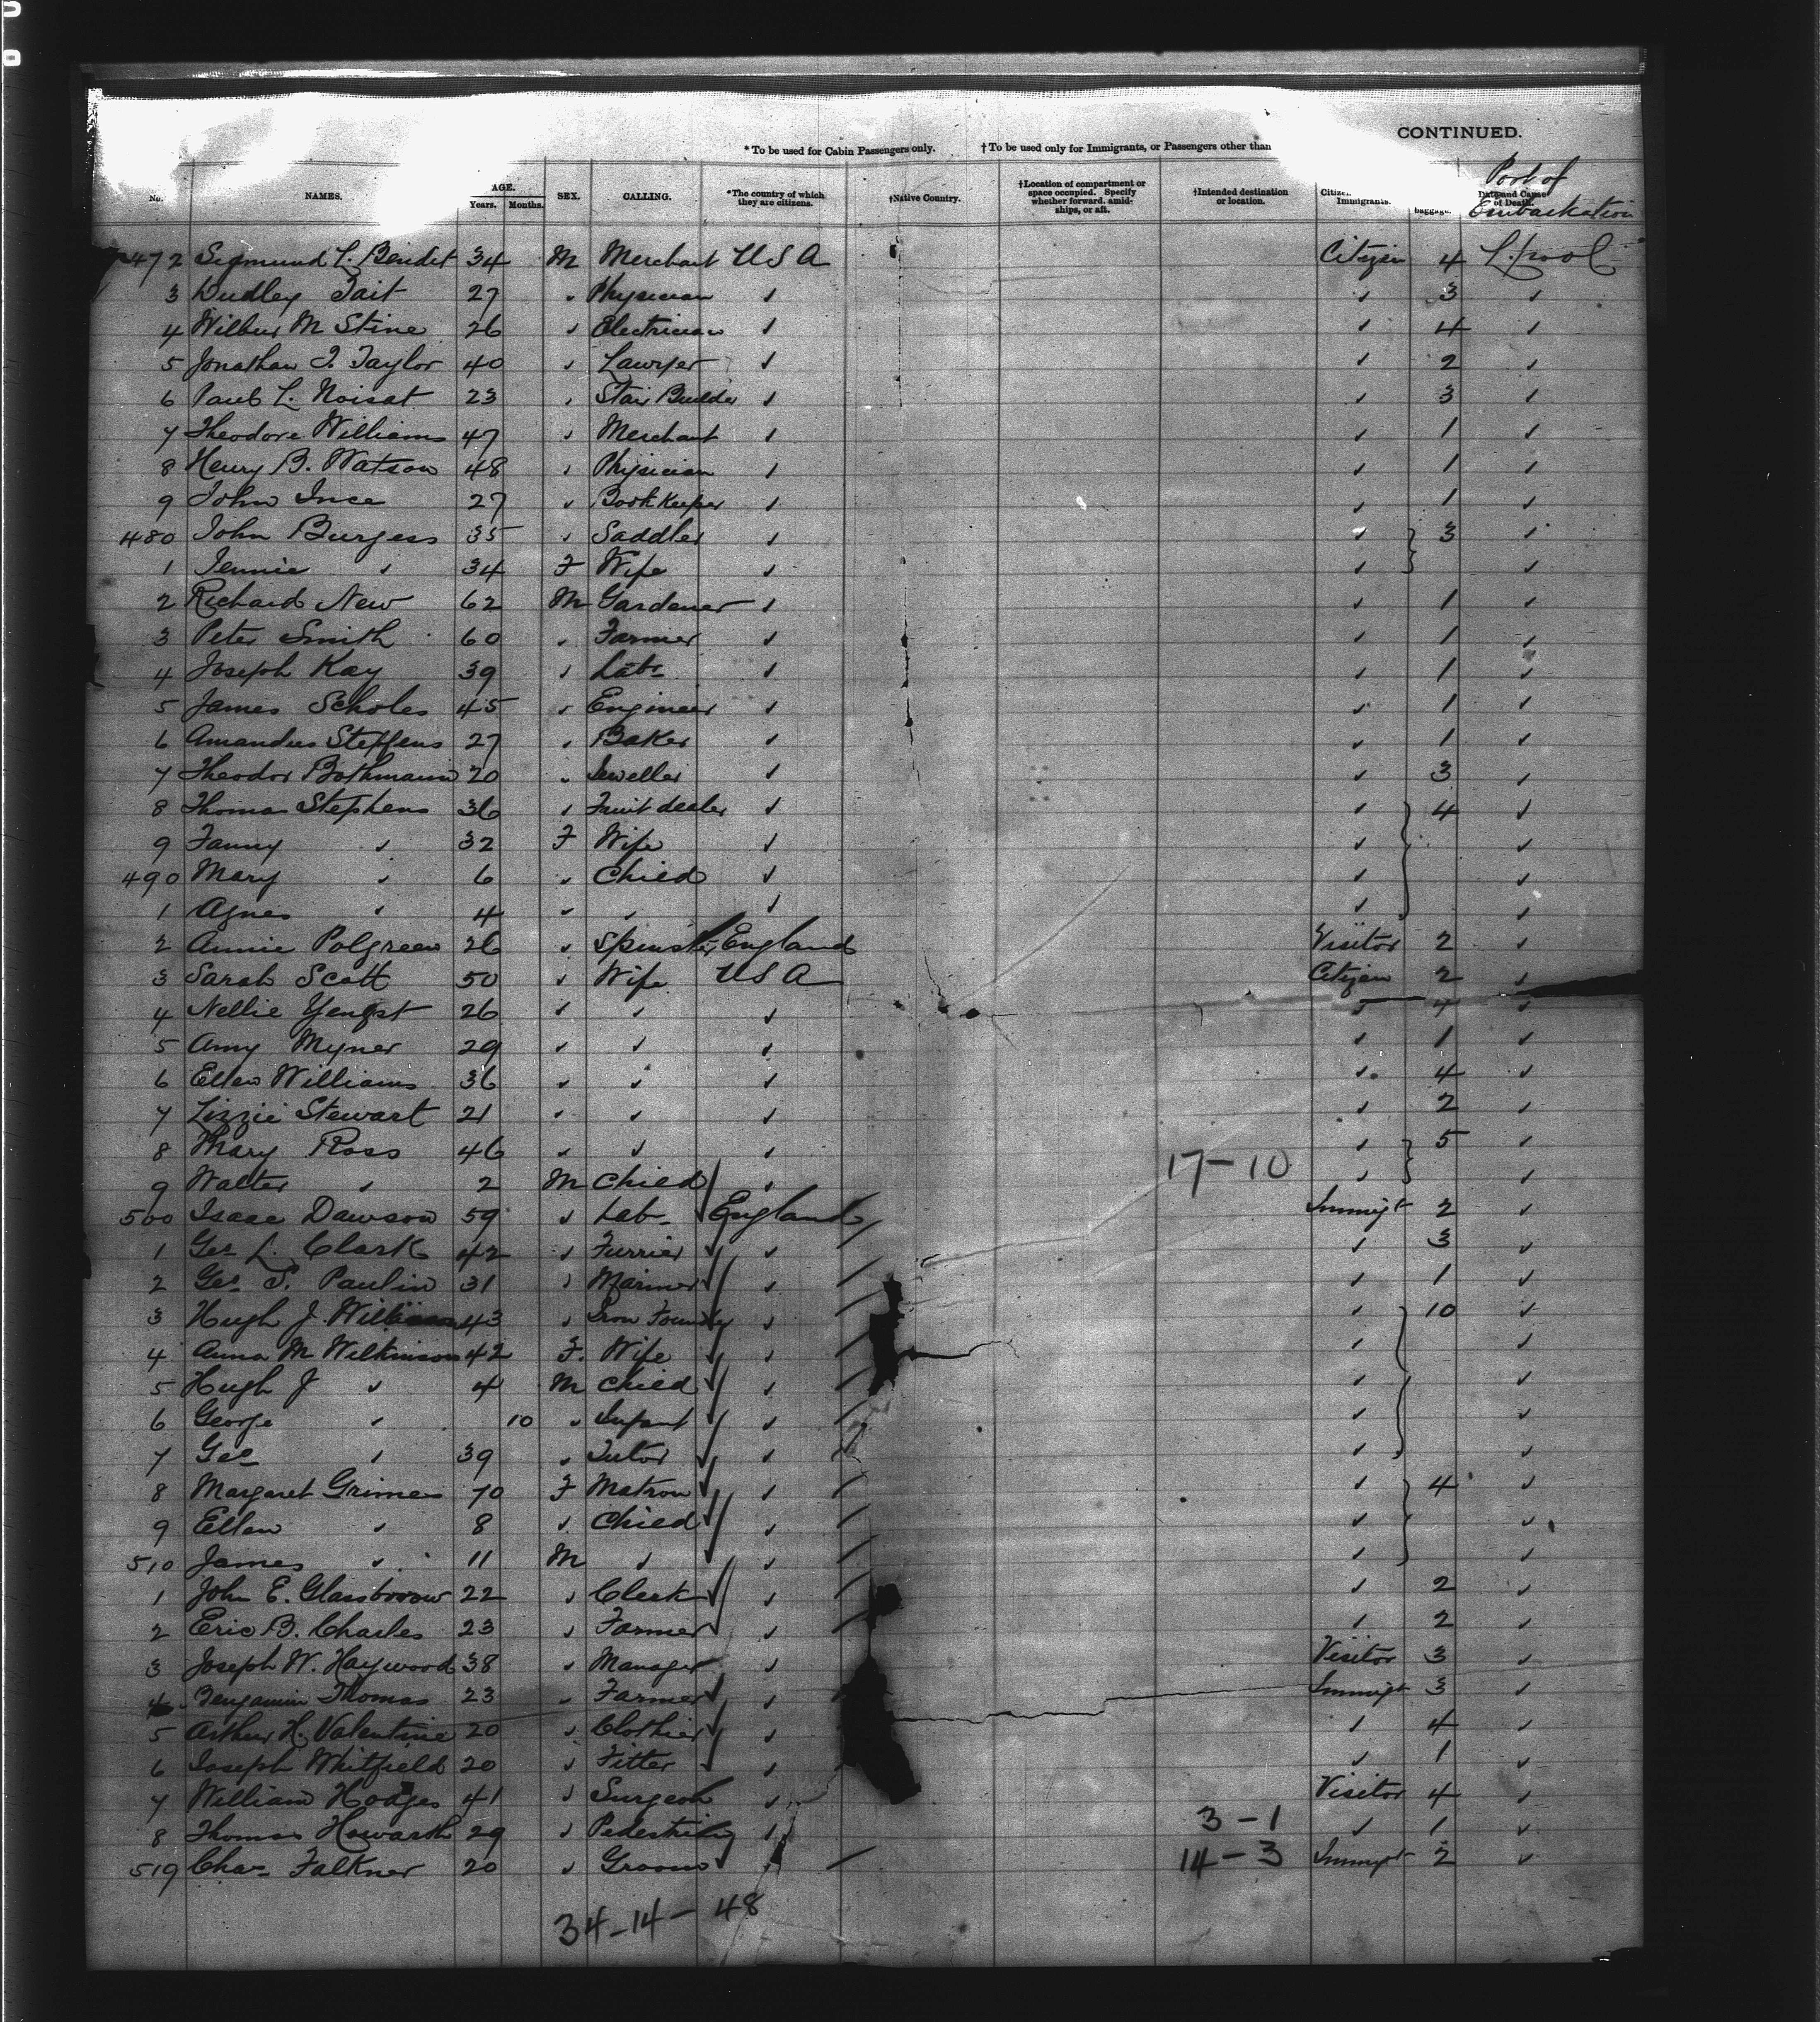 CONTINUED.
*To be used for Cabin Passengers only. †To be used only for Immigrants, or Passengers other than
Port of
Embarkation
No. NAMES. AGE. Years. Months. SEX. CALLING. *The country of which they are citizens. †Native Country. †Location of compartment or space occupied. Specify whether forward, amidships, or aft. †Intended destination or location. Immigrants. baggage. Date and Cause of Death.
472 Sigmund L. Bendit 34 M Merchant U S A Citizen 4 L.pool
3 Dudley Tait 27 " Physician " " 3 "
4 Wilbur M Stine 26 " Electrician " " 4 "
5 Jonathan T. Taylor 40 " Lawyer " " 2 "
6 Paul L. Noisat 23 " Stair Builder " " 3 "
7 Theodore Williams 47 " Merchant " " 1 "
8 Henry B. Watson 48 " Physician " " 1 "
9 John Ince 27 " Bookkeeper " " 1 "
480 John Burgess 35 " Saddler " " 3 "
1 Jennie " 34 F Wife " " "
2 Richard New 62 M Gardener " " 1 "
3 Peter Smith 60 " Farmer " " 1 "
4 Joseph Kay 39 " Labr " " 1 "
5 James Scholes 45 " Engineer " " 1 "
6 Amandus Steffens 27 " Baker " " 1 "
7 Theodor Bothmann 20 " Jeweller " " 3 "
8 Thomas Stephens 36 " Fruit dealer " " 4 "
9 Fanny " 32 F Wife " " "
490 Mary " 6 " Child " " "
1 Agnes " 4 " " " " "
2 Annie Polgreen 26 " Spinster England Visitor 2 "
3 Sarah Scott 50 " Wife U S A Citizen 2 "
4 Nellie Yengst 26 " " " " 4 "
5 Amy Myner 29 " " " " 1 "
6 Ellen Williams 36 " " " " 4 "
7 Lizzie Stewart 21 " " " " 2 "
8 Mary Ross 46 " " " " 5 "
9 Walter " 2 M Child " 17-10 " "
500 Isaac Dawson 59 " Labr England Immigt 2 "
1 Geo L. Clark 42 " Furrier " " 3 "
2 Geo. S. Paulin 31 " Mariner " " 1 "
3 Hugh J. 43 " Iron Foundry " " 10 "
4 Anna M Wilkinson 42 F. Wife " " "
5 Hugh J " 4 M Child " " "
6 George " 10 " Infant " " "
7 Geo " 39 " Tutor " " "
8 Margaret Grimes 70 F Matron " " 4 "
9 Ellen " 8 " Child " " "
510 James " 11 M " " " "
1 John E. Glassborow 22 " Clerk " " 2 "
2 Eric B. Charles 23 " Farmer " " 2 "
3 Joseph W. Haywood 38 " Manager " Visitor 3 "
4 Benjamin Thomas 23 " Farmer " Immigt 3 "
5 Arthur H. Valentine 20 " Clothier " " 4 "
6 Joseph Whitfield 20 " Fitter " " 1 "
7 William Hodges 41 " Surgeon " Visitor 4 "
8 Thomas Howarth 29 " " 3-1 " 1 "
519 Chas Falkner 20 " Groom 14-3 Immigt 2 "
34-14-48